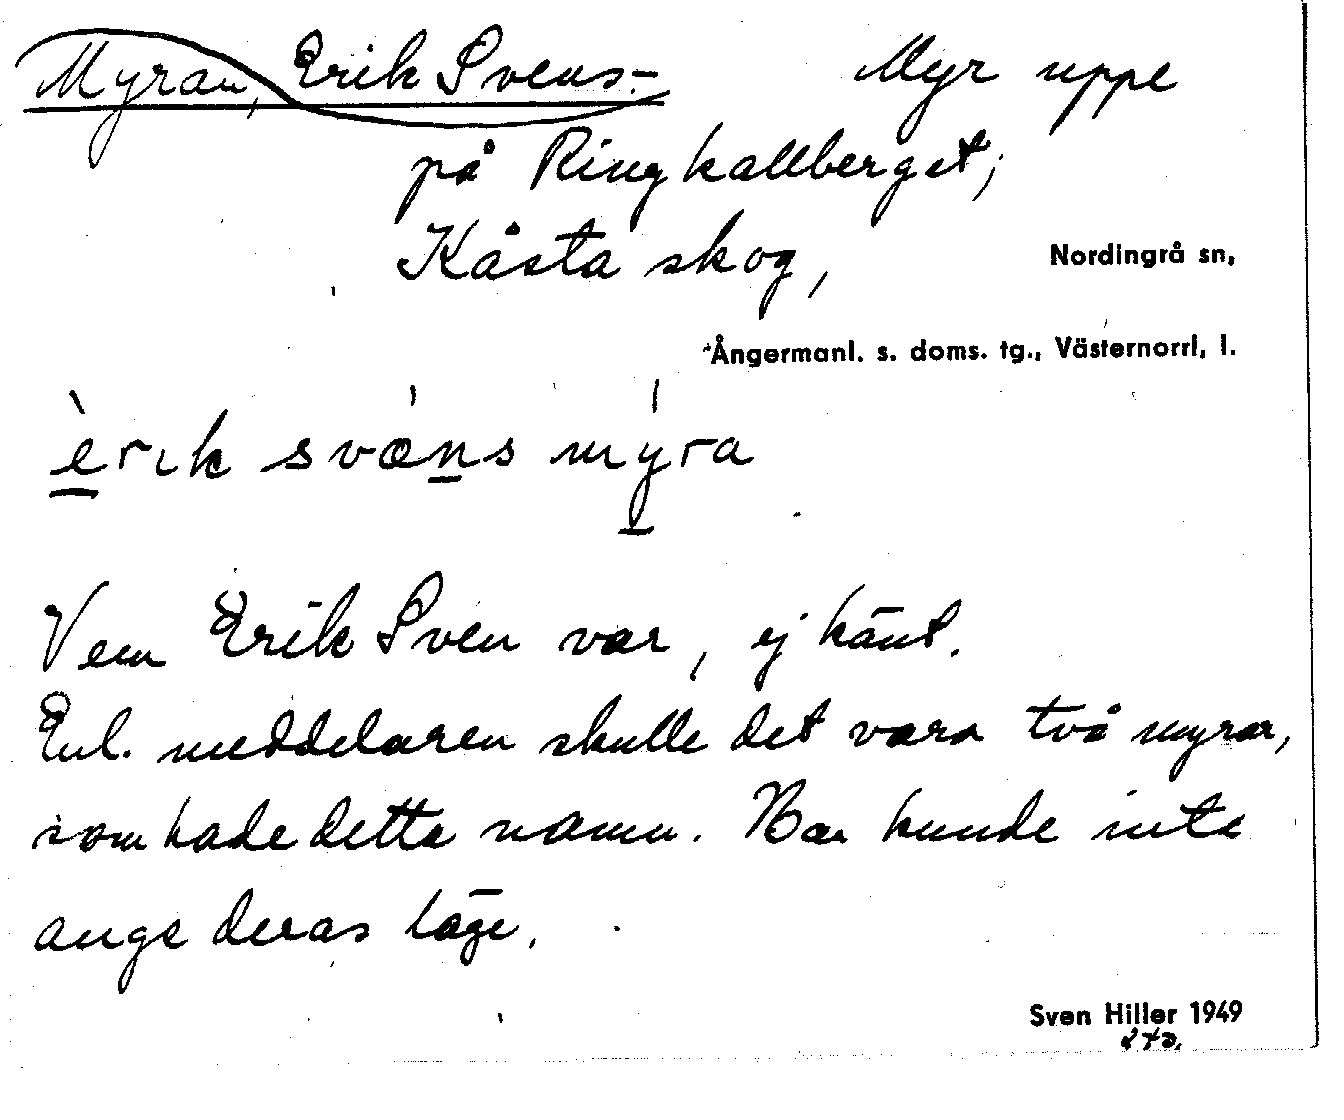 Myran, Erik Svens- Myr uppe
på Ringkallberget,
Kåsta skog, Nordingrå sn,
Ångermanl. s. doms. tg., Västernorrl. l.
èrik svæns myra
Vem Erik Sven var, ej känt.
Enl. meddelaren skulle det vara två myrar,
som hade detta namn. Han kunde inte
ange deras läge.
Sven Hiller 1949